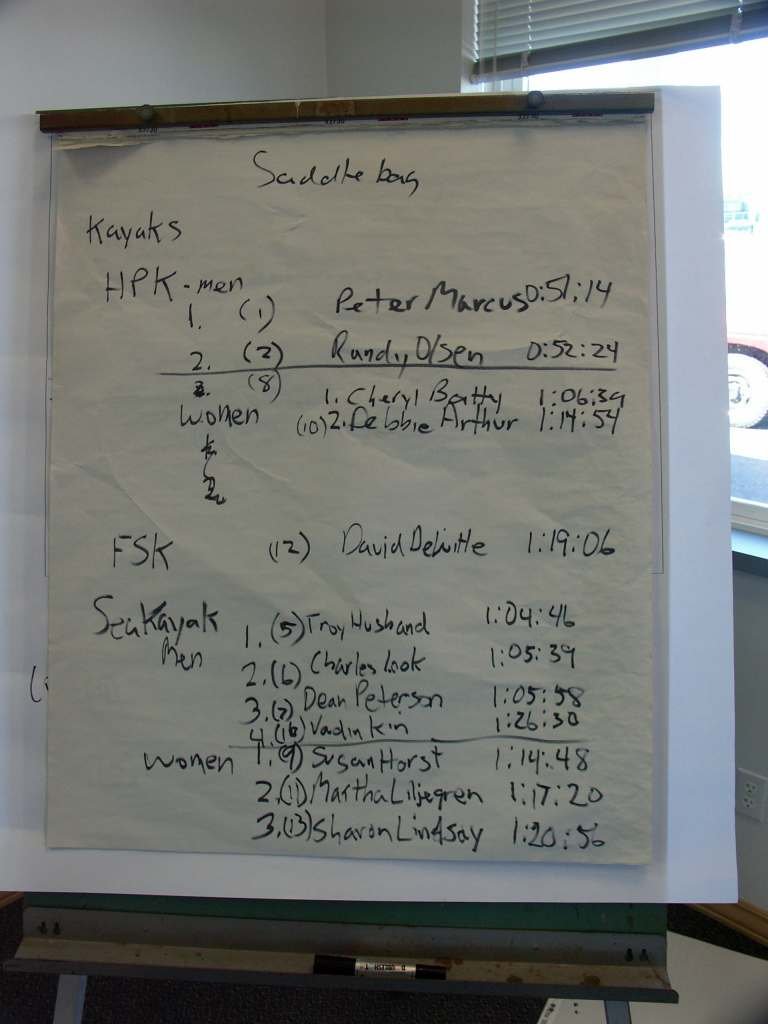 Saddle bag
Kayaks
HPK - men
1. (1) Peter Marcus 0:51:14
2. (2) Randy Olsen 0:52:24
(8) 1. Cheryl Beatty 1:06:39
Women (10) 2. Debbie Arthur 1:14:54
FSK (12) David DeWitte 1:19:06
Sea Kayak 1. (5) Troy Husband 1:04:46
Men 2. (6) Charles Look 1:05:39
3. (7) Dean Peterson 1:05:58
4. (16) Vadin Kin 1:26:30
women 1. (9) Susan Horst 1:14:48
2. (11) Martha Liljegren 1:17:20
3. (13) Sharon Lindsay 1:20:56